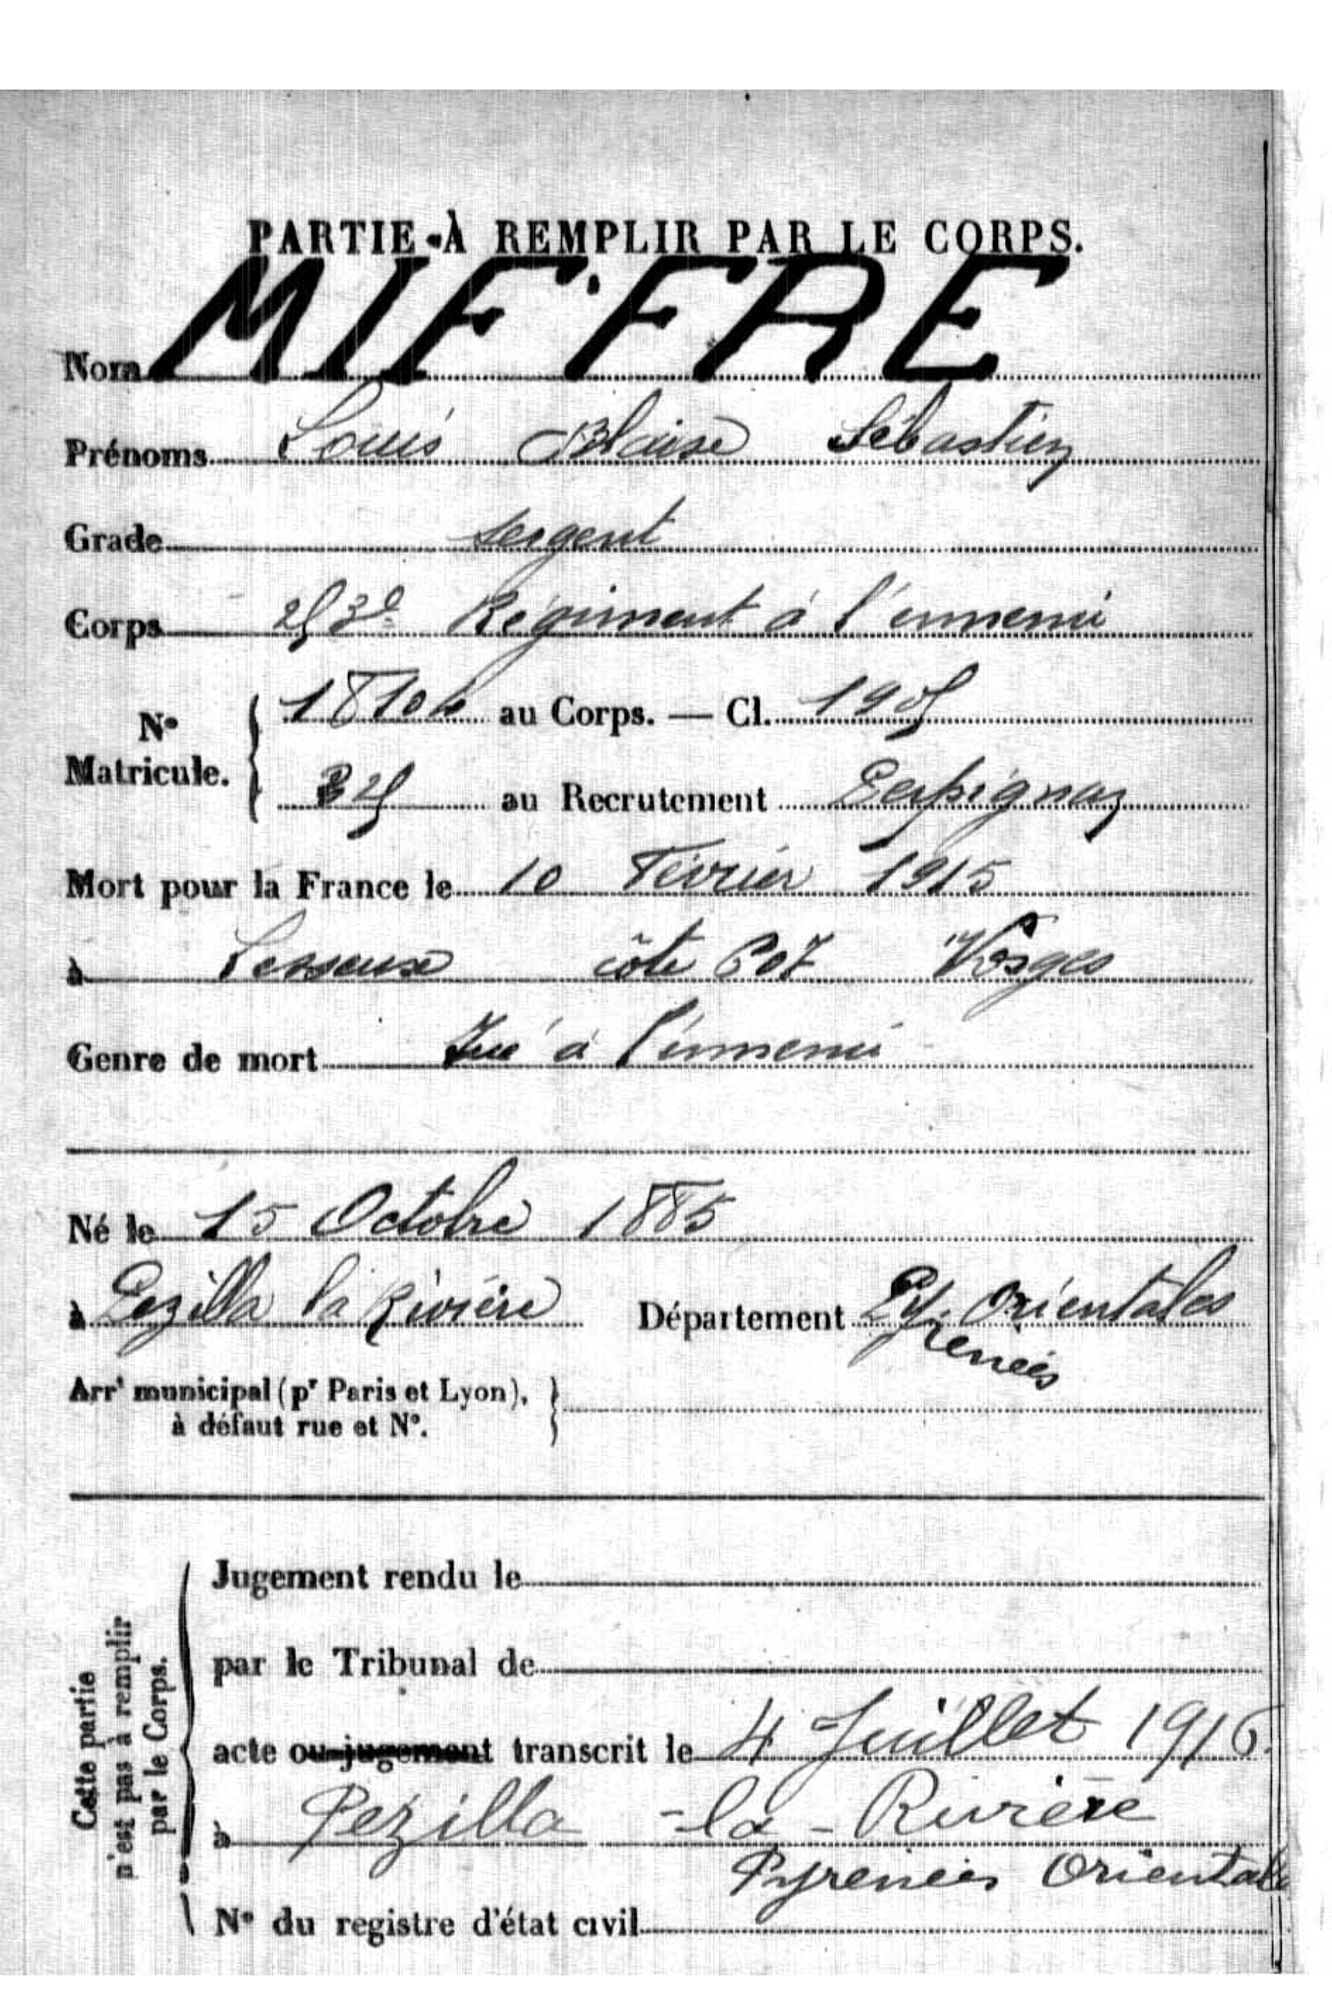 PARTIE À REMPLIR PAR LE CORPS.
Nom MIFFRE
Prénoms Louis Blaise Sébastien
Grade Sergent
Corps 253e Régiment à l'ennemi
N° Matricule. 18104 au Corps. — Cl. 1905
325 au Recrutement Perpignan
Mort pour la France le 10 Février 1915
à Lesseux côte 607 Vosges
Genre de mort Tué à l'ennemi
Né le 15 Octobre 1885
à Pezilla la Rivière Département Py. Orientales
renées
Arrt municipal (pr Paris et Lyon),
à défaut rue et N°.
Cette partie
n'est pas à remplir
par le Corps.
Jugement rendu le
par le Tribunal de
acte ou jugement transcrit le 4 Juillet 1916.
à Pezilla-la-Rivière
Pyrenées Orientales
N° du registre d'état civil